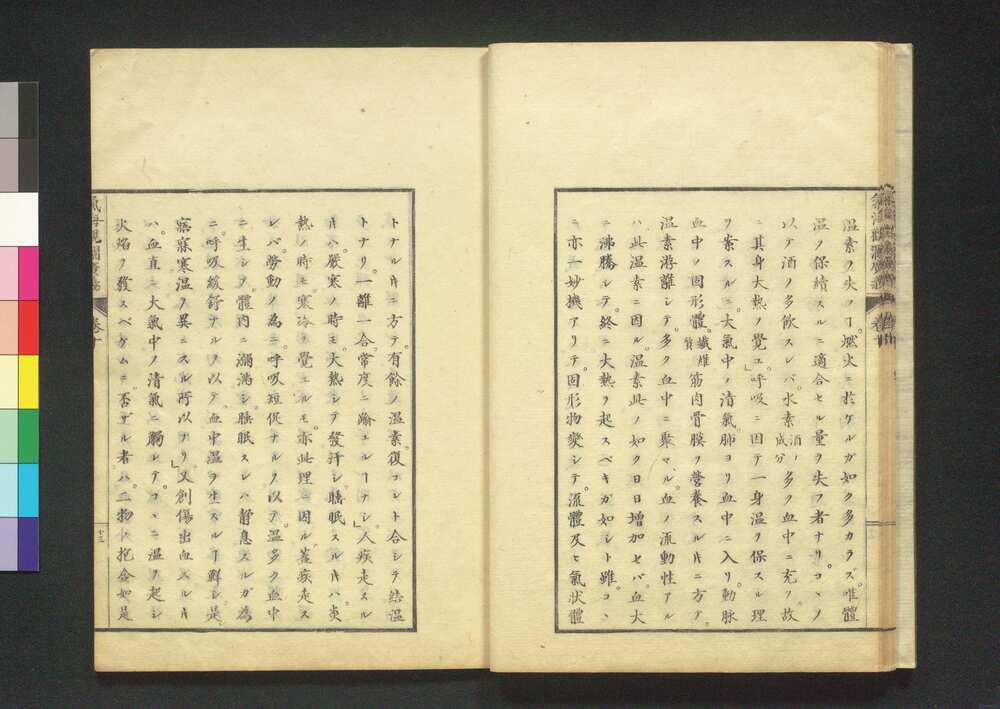 温素ヲ失フヿ。燃火ニ於ケルガ如ク多カラズ。唯體
温ノ保續スルニ適合セル量ヲ失フ者ナリ。コヽノ
以テ酒ヲ多飲スレバ水素酒ノ成分多ク血中ニ充ツ。故
ニ其身大熱ヲ覺ユ」呼吸ニ因テ一身温ヲ保スル理
ヲ案スルニ。大氣中ノ清氣。肺ヨリ血中ニ入リ。動脉
血中ノ固形體。纖維質筋肉骨膜ヲ營養スル片ニ方テ。
温素游離シテ。多ク血中ニ聚マル。血ノ流動性アル
ハ此温素ニ因ル。温素此ノ如ク日日増加セバ血大
ニ沸騰シテ。終ニ大熱ヲ起スベキガ如シト雖。コヽ
ニ亦一妙機アリテ。固形物變シテ。流體及ヒ氣状體
トナル片ニ方テ。有餘ノ温素。復コレト合シテ結温
トナリ。一離一合常度ニ踰ユルヿナシ」人疾走スル
片ハ。嚴寒ノ時モ大熱シテ發汗シ。睡眠スル片ハ炎
熱ノ時モ寒冷ヲ覺ユルモ。亦此理ニ因ル。蓋疾走ス
レバ。勞動ノ為ニ呼吸短促ナルヲ以テ。温多ク血中
ニ生シテ。體内ニ瀰満シ。睡眠スレハ静息スルガ為
ニ。呼吸緩舒ナルヲ以テ。血中温ヲ生スルヿ鮮シ。是
寤寐寒温ヲ異ニスル所以ナリ」又創傷出血スル片
ハ。血直ニ大氣中ノ清氣ニ觸レテ。コヽニ温ヲ起シ
火焔ヲ發スベケムニ。否ザル者ハ。二物ノ抱合如是
氣海觀瀾廣義
卷十
十三